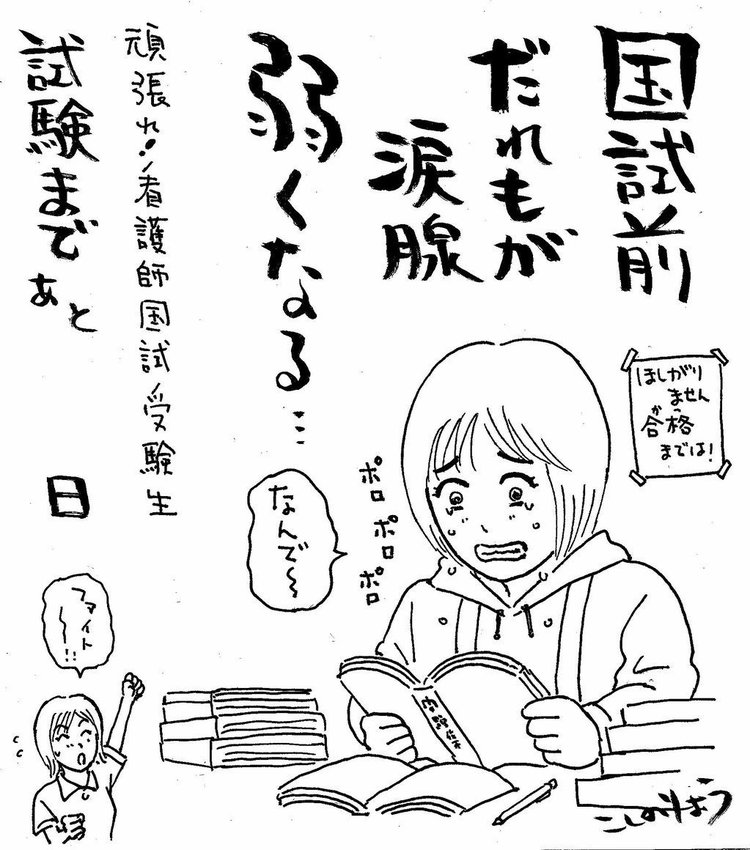 国試前
だれもが
涙腺
弱くなる…
頑張れ!看護師国試受験生
試験まで
あと
日
ほしがり
ません
が
合格
までは!
ポロ
ポロ
ポロ
なんで〜
ファイト
〜!!